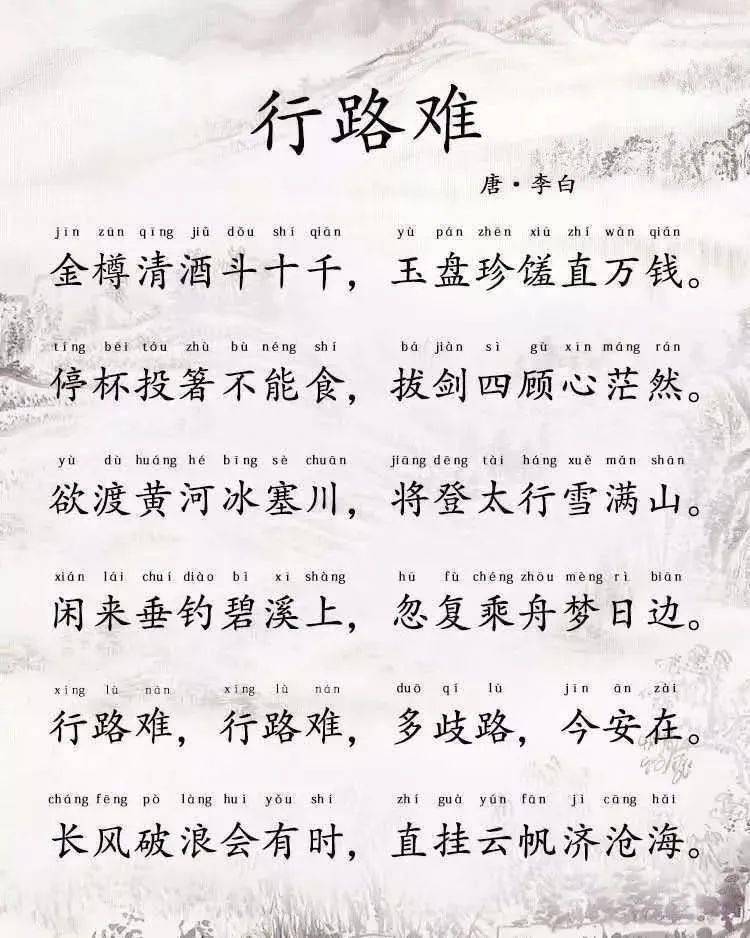 行路难
唐·李白
jīn zūn qīng jiǔ dǒu shí qiān yù pán zhēn xiū zhí wàn qián
金樽清酒斗十千，玉盘珍馐直万钱。
tíng bēi tóu zhù bù néng shí bá jiàn sì gù xīn máng rán
停杯投箸不能食，拔剑四顾心茫然。
yù dù huáng hé bīng sè chuān jiāng dēng tài háng xuě mǎn shān
欲渡黄河冰塞川，将登太行雪满山。
xián lái chuí diào bì xī shàng hū fù chéng zhōu mèng rì biān
闲来垂钓碧溪上，忽复乘舟梦日边。
xíng lù nán xíng lù nán duō qí lù jīn ān zài
行路难，行路难，多歧路，今安在。
cháng fēng pò làng huì yǒu shí zhí guà yún fān jì cāng hǎi
长风破浪会有时，直挂云帆济沧海。